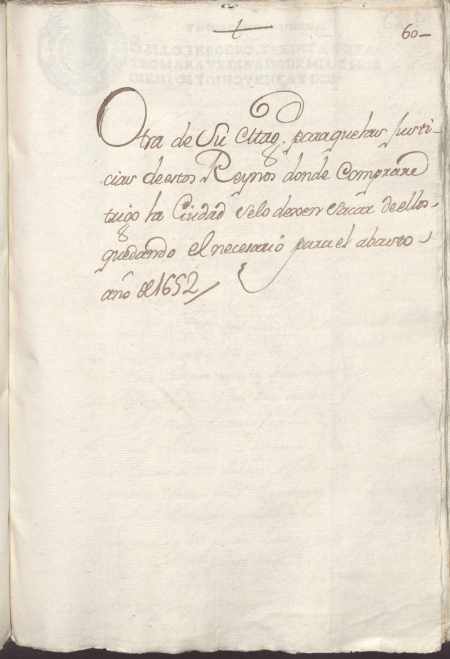 60
Otra de Su Mag. para que las Justi-
cias de estos Reynos donde Comprare
trigo la Ciudad se lo dexen Sacar de ellos
quedando el necesario para el abasto
año de 1652